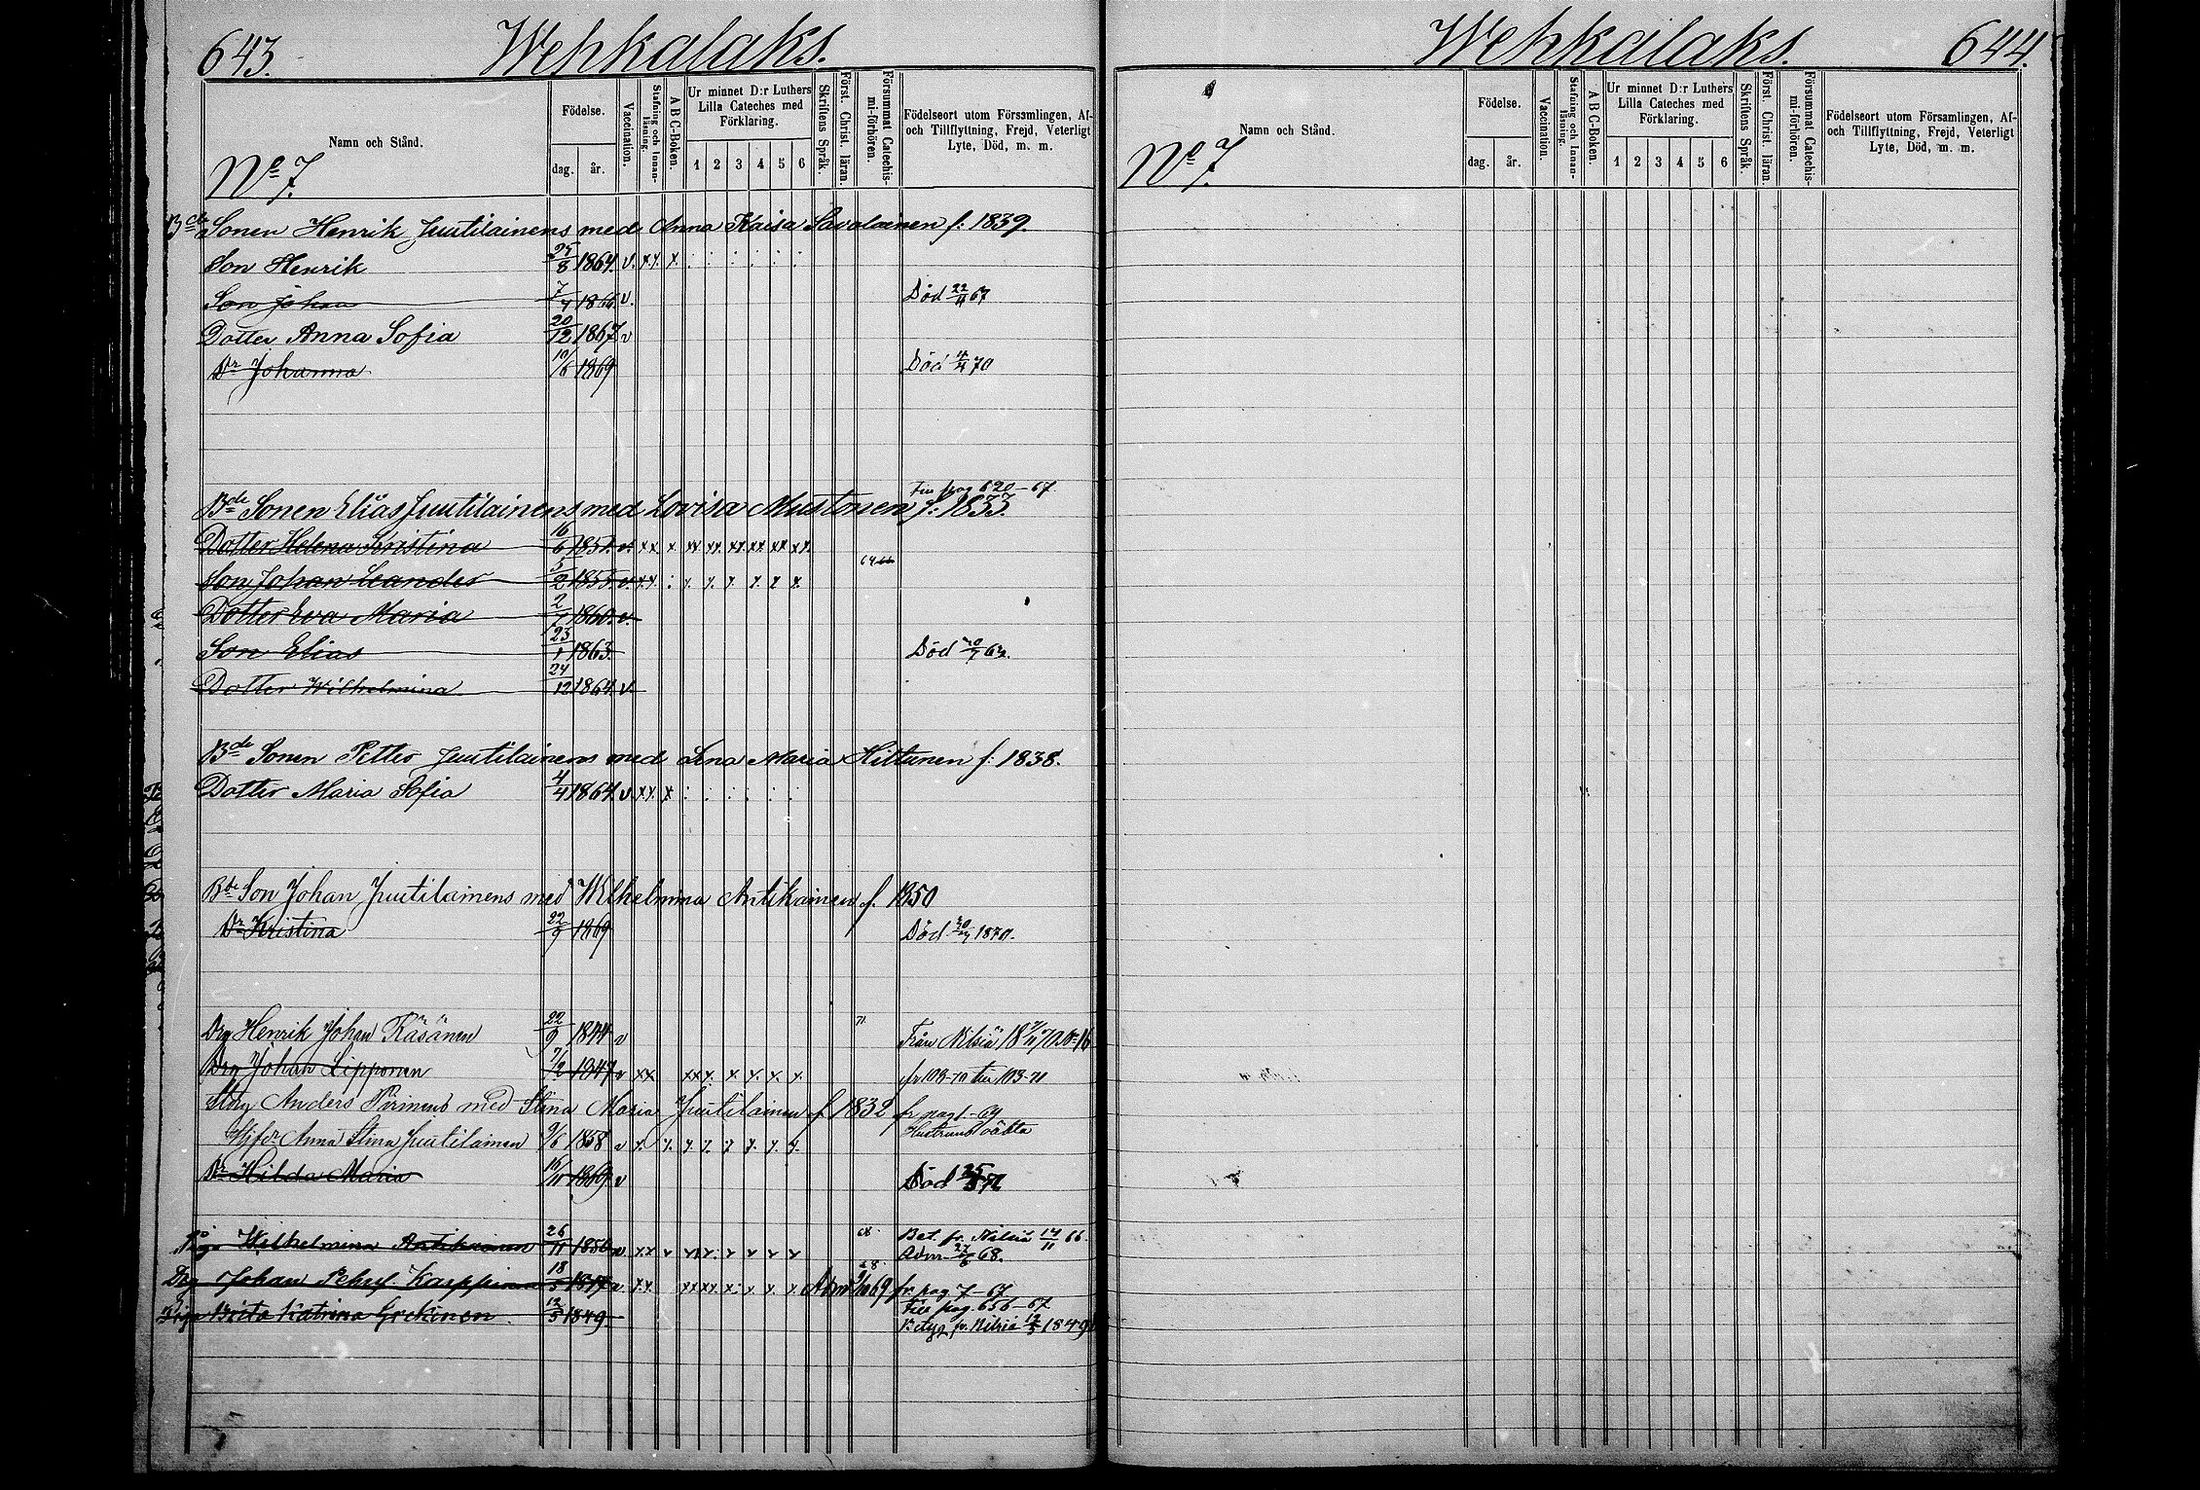 643. Wehkalaks.
Namn och Stånd.
Födelse.
dag. år.
Vaccination.
Stafning och Innanläsning.
A B C-Boken.
Ur minnet D:r Luthers Lilla Cateches med Förklaring.
1 2 3 4 5 6
Skriftens Språk.
Först. Christ. läran.
Försummat Catechismi-förhören.
Födelseort utom Församlingen, Af- och Tillflyttning, Frejd, Veterligt Lyte, Död, m. m.
No 7.
Bde Sonen Henrik Juutilainens med Anna Kaisa Savolainen f: 1839.
Son Henrik 25/8 1864. v. xx. x.
Son Johan 7/4 1866 v. Död 22/11 67
Dotter Anna Sofia 20/12 1867 v
Dr Johanna 10/6 1869 Död 4/4 70
Till pag 620-67
Bde Sonen Elias Juutilainens med Lovisa Mustonen f: 1833.
Dotter Helena Kristina 16/6 1851. v. xx x xx xx xx xx xx xx
Son Johan Leander 5/2 1855. v. xx
Dotter Eva Maria 2/7 1860. v.
Son Elias 23/1 1863. Död
Dotter Wilhelmina 24/12 1864. v.
Bde Sonen Petter Juutilainens med Lena Maria Hiltunen f: 1838.
Dotter Maria Sofia 4/4 1864. v. xx. x
Bde Son Johan Juutilainens med Wilhelmina Antikainen f. 1850
Dr Kristina 22/9 1869 Död 1870.
71
Drg Henrik Johan Räsänen 22/9 1844 v Från Nilsiä
Drg Johan Lipponen 7/2 1847 v xx xx x. x x. x. x. fr 103-70 till 103-71
Anders Pirinens med Stina Maria Juutilainen f 1832 fr pag 1-69
Anna Stina Juutilainen 9/6 1858 v Hustruns oäkta
Dr Hilda Maria 16/10 1869 v Död
Wilhelmina Antikainen 26/11 1850 v xx Bet. fr. Nilsiä 14/11 66.
Adm 68.
Drg Johan Karppinen 18/5 1847 v xx fr. pag. 7-67
Till pag. 656-67
Brita Katrina 12/5 1849. Betyg fr. Nilsiä 12/5 1849
Wehkalaks. 644.
Namn och Stånd.
Födelse.
dag. år.
Vaccination.
Stafning och Innanläsning.
A B C-Boken.
Ur minnet D:r Luthers Lilla Cateches med Förklaring.
1 2 3 4 5 6
Skriftens Språk.
Först. Christ. läran.
Försummat Catechismi-förhören.
Födelseort utom Församlingen, Af- och Tillflyttning, Frejd, Veterligt Lyte, Död, m. m.
No 7.